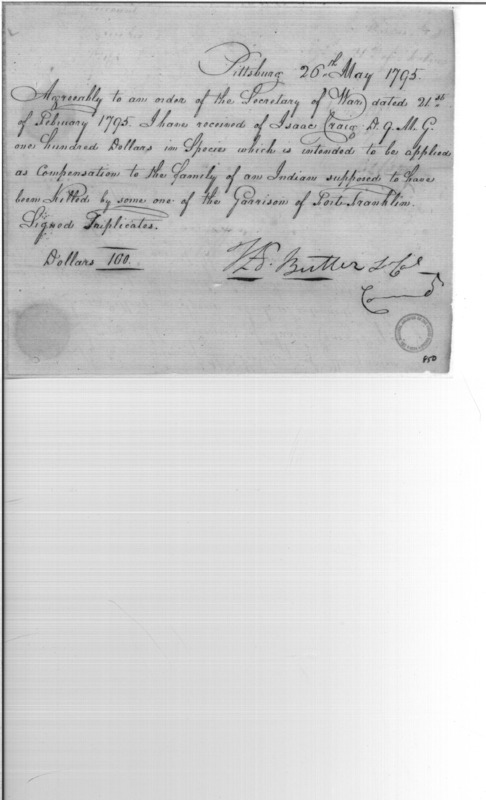 Pittsburg 26th May 1795
Agreeably to an order of the Secretary of War, dated 21st
of February 1795. I have received of Isaac Craig D. Q. M. G.
one hundred Dollars in Specie which is intended to be applied
as Compensation to the family of an Indian supposed to have
been killed by some one of the Garrison of Fort Franklin.
Signed Triplicates.
Dollars 100.
Butler Lt Col
Comdt
850